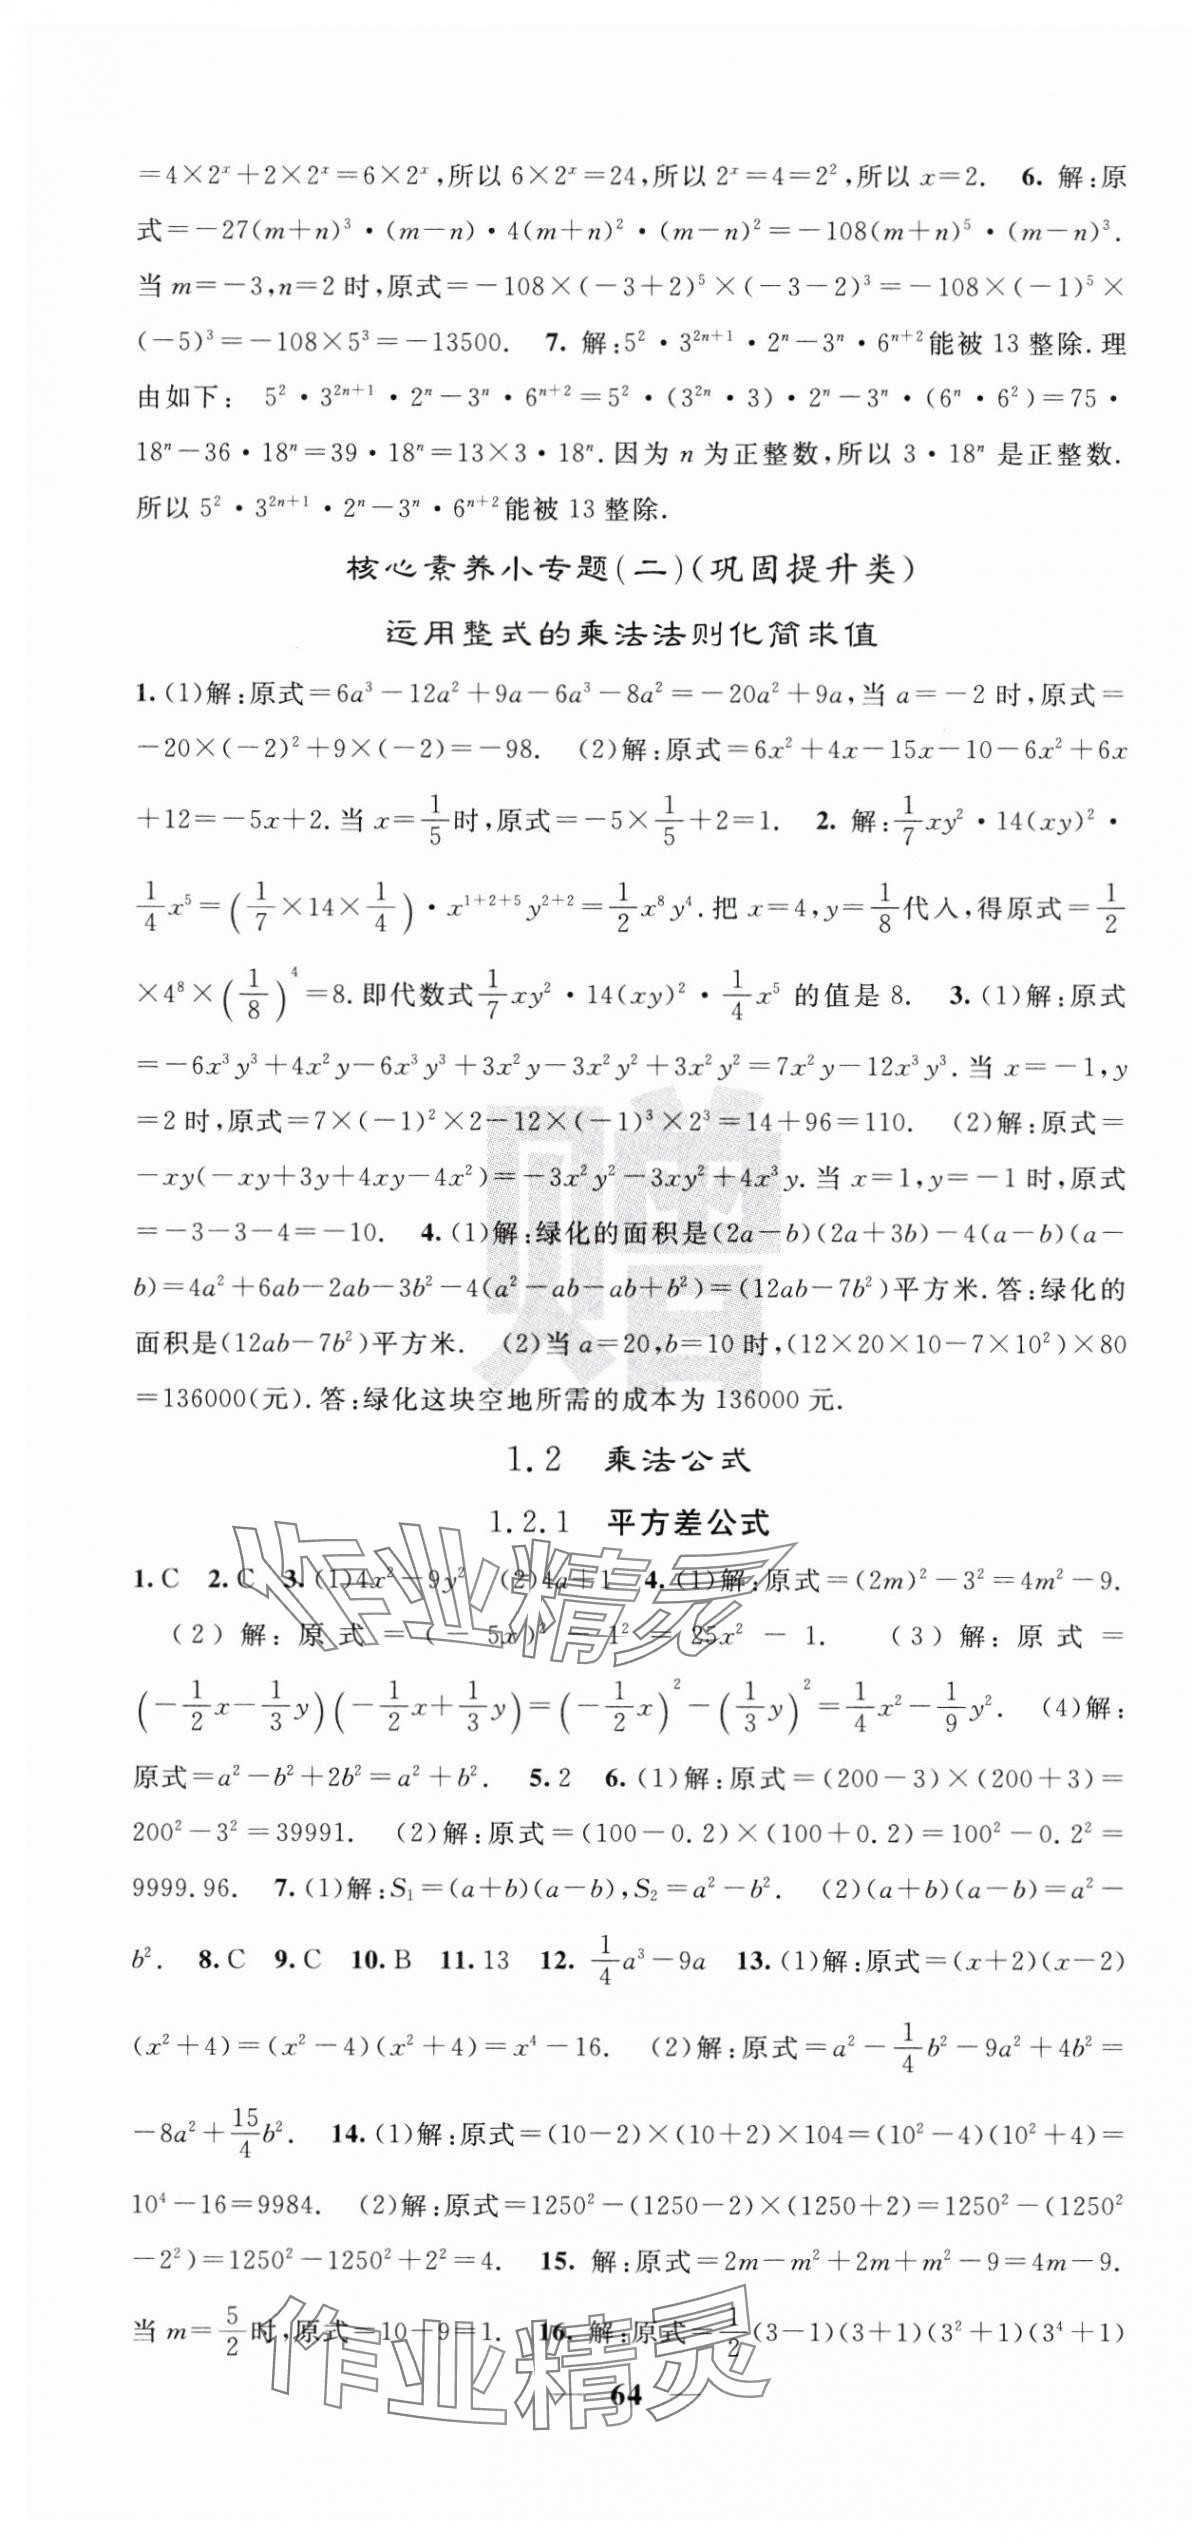 =4×2ˣ+2×2ˣ=6×2ˣ,所以 6×2ˣ=24,所以 2ˣ=4=2²,所以 x=2. 6. 解:原
式=-27(m+n)³·(m-n)·4(m+n)²·(m-n)²=-108(m+n)⁵·(m-n)³.
当 m=-3,n=2 时,原式=-108×(-3+2)⁵×(-3-2)³=-108×(-1)⁵×
(-5)³=-108×5³=-13500. 7. 解:5²·3²ⁿ⁺¹·2ⁿ-3ⁿ·6ⁿ⁺²能被 13 整除.理
由如下: 5²·3²ⁿ⁺¹·2ⁿ-3ⁿ·6ⁿ⁺²=5²·(3²ⁿ·3)·2ⁿ-3ⁿ·(6ⁿ·6²)=75·
18ⁿ-36·18ⁿ=39·18ⁿ=13×3·18ⁿ.因为 n 为正整数,所以 3·18ⁿ 是正整数.
所以 5²·3²ⁿ⁺¹·2ⁿ-3ⁿ·6ⁿ⁺²能被 13 整除.
核心素养小专题(二)(巩固提升类)
运用整式的乘法法则化简求值
1. (1)解:原式=6a³-12a²+9a-6a³-8a²=-20a²+9a,当 a=-2 时,原式=
-20×(-2)²+9×(-2)=-98. (2)解:原式=6x²+4x-15x-10-6x²+6x
+12=-5x+2.当 x=1/5时,原式=-5×1/5+2=1. 2. 解:1/7xy²·14(xy)²·
1/4x⁵=(1/7×14×1/4)·x¹⁺²⁺⁵y²⁺²=1/2x⁸y⁴.把 x=4,y=1/8代入,得原式=1/2
×4⁸×(1/8)⁴=8.即代数式1/7xy²·14(xy)²·1/4x⁵ 的值是 8. 3. (1)解:原式
=-6x³y³+4x²y-6x³y³+3x²y-3x²y²+3x²y²=7x²y-12x³y³.当 x=-1,y
=2 时,原式=7×(-1)²×2-12×(-1)³×2³=14+96=110. (2)解:原式=
-xy(-xy+3y+4xy-4x²)=-3x²y²-3xy²+4x³y.当 x=1,y=-1 时,原式
=-3-3-4=-10. 4. (1)解:绿化的面积是(2a-b)(2a+3b)-4(a-b)(a-
b)=4a²+6ab-2ab-3b²-4(a²-ab-ab+b²)=(12ab-7b²)平方米.答:绿化的
面积是(12ab-7b²)平方米. (2)当 a=20,b=10 时,(12×20×10-7×10²)×80
=136000(元).答:绿化这块空地所需的成本为 136000 元.
赠
1.2 乘法公式
1.2.1 平方差公式
1. C 2. C 3. (1)4x²-9y² (2)4a+1 4. (1)解:原式=(2m)²-3²=4m²-9.
(2)解:原式=(-5x)²-1²=25x²-1. (3)解:原式=
(-1/2x-1/3y)(-1/2x+1/3y)=(-1/2x)²-(1/3y)²=1/4x²-1/9y². (4)解:
原式=a²-b²+2b²=a²+b². 5. 2 6. (1)解:原式=(200-3)×(200+3)=
200²-3²=39991. (2)解:原式=(100-0.2)×(100+0.2)=100²-0.2²=
9999.96. 7. (1)解:S₁=(a+b)(a-b),S₂=a²-b². (2)(a+b)(a-b)=a²-
b². 8. C 9. C 10. B 11. 13 12. 1/4a³-9a 13. (1)解:原式=(x+2)(x-2)
(x²+4)=(x²-4)(x²+4)=x⁴-16. (2)解:原式=a²-1/4b²-9a²+4b²=
-8a²+15/4b². 14. (1)解:原式=(10-2)×(10+2)×104=(10²-4)(10²+4)=
10⁴-16=9984. (2)解:原式=1250²-(1250-2)×(1250+2)=1250²-(1250²
-2²)=1250²-1250²+2²=4. 15. 解:原式=2m-m²+2m+m²-9=4m-9.
当 m=5/2时,原式=10-9=1. 16. 解:原式=1/2(3-1)(3+1)(3²+1)(3⁴+1)
作业精灵
作业精灵
64